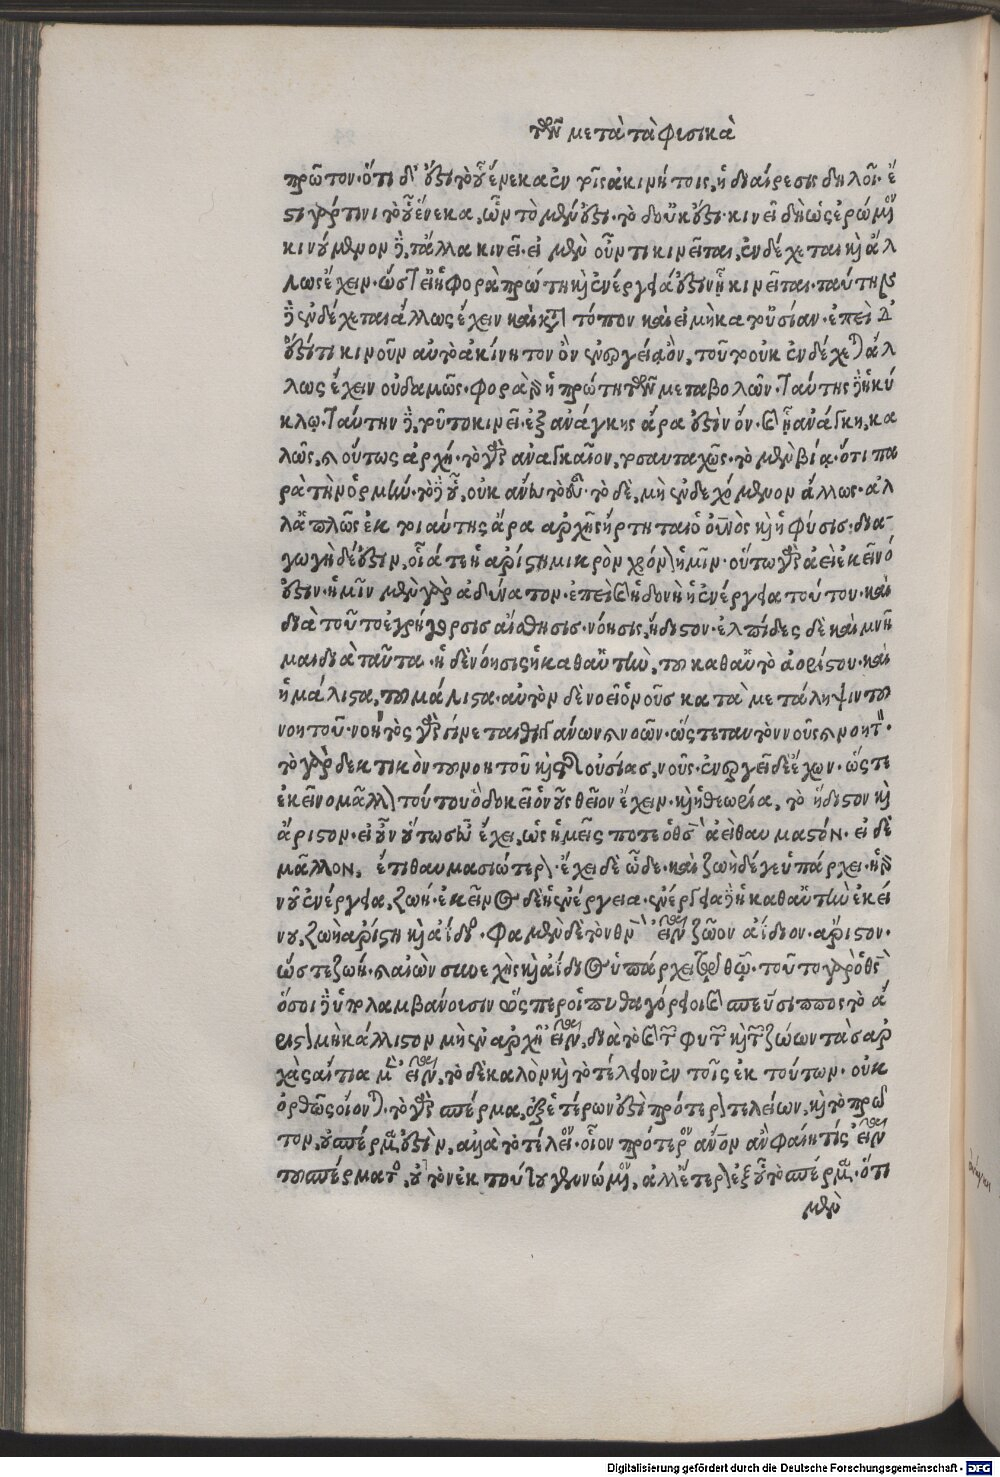 τῶν μετὰ τὰ φυσικὰ
πρῶτον· ὅτι δ' ἔστι τὸ οὗ ἕνεκα ἐν τοῖς ἀκινήτοις, ἡ διαίρεσις δηλοῖ· ἔ
στι γάρ τινι τὸ οὗ ἕνεκα, ὧν τὸ μὲν ἔστι· τὸ δ' οὐκ ἔστι· κινεῖ δὴ ὡς ἐρώμενον
κινούμενον δὲ, τἆλλα κινεῖ· εἰ μὲν οὖν τι κινεῖται, ἐνδέχεται καὶ ἄλ
λως ἔχειν· ὥστ' εἰ ἡ φορὰ πρώτη καὶ ἐνέργειά ἐστιν ᾗ κινεῖται· ταύτῃ
δὲ ἐνδέχεται ἄλλως ἔχειν καὶ κατὰ τόπον καὶ εἰ μὴ κατ' οὐσίαν· ἐπεὶ δ'
ἔστί τι κινοῦν αὐτὸ ἀκίνητον ὂν ἐνεργείᾳ ὂν, τοῦτο οὐκ ἐνδέχεται ἄλ
λως ἔχειν οὐδαμῶς· φορὰ γὰρ ἡ πρώτη τῶν μεταβολῶν· ταύτης δὲ ἡ κύ
κλῳ· ταύτην δὲ, τοῦτο κινεῖ· ἐξ ἀνάγκης ἄρα ἐστὶν ὄν· καὶ ᾗ ἀνάγκη, κα
λῶς, καὶ οὕτως ἀρχή· τὸ γὰρ ἀναγκαῖον, τοσαυταχῶς· τὸ μὲν βίᾳ· ὅτι πα
ρὰ τὴν ὁρμήν· τὸ δὲ οὗ, οὐκ ἄνευ τὸ εὖ· τὸ δὲ, μὴ ἐνδεχόμενον ἄλλως· ἀλ
λ' ἁπλῶς ἐκ τοιαύτης ἄρα ἀρχῆς ἤρτηται ὁ οὐρανὸς καὶ ἡ φύσις· δια-
γωγὴ δέ ἐστιν, οἵα τε ἡ ἀρίστη μικρὸν χρόνον ἡμῖν· οὕτω γὰρ ἀεὶ ἐκεῖνό
ἐστιν· ἡμῖν μὲν γὰρ ἀδύνατον· ἐπεὶ καὶ ἡδονὴ ἡ ἐνέργεια τούτου· καὶ
διὰ τοῦτο ἐγρήγορσις αἴσθησις· νόησις, ἥδιστον· ἐλπίδες δὲ καὶ μνῆ
μαι διὰ ταῦτα· ἡ δὲ νόησις ἡ καθ' αὑτὴν, τοῦ καθ' αὑτὸ ἀρίστου· καὶ
ἡ μάλιστα, τοῦ μάλιστα· αὑτὸν δὲ νοεῖ ὁ νοῦς κατὰ μετάληψιν τοῦ
νοητοῦ· νοητὸς γὰρ γίνεται θιγγάνων καὶ νοῶν· ὥστε ταυτὸν νοῦς καὶ νοητόν·
τὸ γὰρ δεκτικὸν τοῦ νοητοῦ καὶ τῆς οὐσίας, νοῦς· ἐνεργεῖ δὲ ἔχων· ὥστε
ἐκεῖνο μᾶλλον τούτου ὃ δοκεῖ ὁ νοῦς θεῖον ἔχειν· καὶ ἡ θεωρία, τὸ ἥδιστον καὶ
ἄριστον· εἰ οὖν οὕτως εὖ ἔχει, ὡς ἡμεῖς ποτε ὁ θεὸς ἀεὶ θαυμαστόν· εἰ δὲ
μᾶλλον, ἔτι θαυμασιώτερον· ἔχει δὲ ὧδε· καὶ ζωὴ δέ γε ὑπάρχει· ἡ γὰρ
νοῦ ἐνέργεια, ζωή· ἐκεῖνος δὲ ἡ ἐνέργεια· ἐνέργεια δὲ ἡ καθ' αὑτὴν ἐκεί
νου, ζωὴ ἀρίστη καὶ ἀΐδιος· φαμὲν δὲ τὸν θεὸν εἶναι ζῶον ἀΐδιον· ἄριστον·
ὥστε ζωὴ· καὶ αἰὼν συνεχὴς καὶ ἀΐδιος ὑπάρχει τῷ θεῷ· τοῦτο γὰρ ὁ θεὸς
ὅσοι δὲ ὑπολαμβάνουσιν ὥσπερ οἱ πυθαγόρειοι καὶ σπεύσιππος τὸ ἄ
ριστον μὴ κάλλιστον μὴ ἐν ἀρχῇ εἶναι, διὰ τὸ καὶ τῶν φυτῶν καὶ τῶν ζώων τὰς ἀρ
χὰς αἴτια μὲν εἶναι, τὸ δὲ καλὸν καὶ τὸ τέλειον ἐν τοῖς ἐκ τούτων· οὐκ
ὀρθῶς οἴονται· τὸ γὰρ σπέρμα, ἐξ ἑτέρων ἐστὶ πρότερον τελείων, καὶ τὸ πρῶ
τον, οὐ σπέρμα ἐστὶν, ἀλλὰ τὸ τέλειον· οἷον πρότερον ἄνθρωπον ἂν φαίη τίς εἶναι
τοῦ σπέρματος, οὐ τὸν ἐκ τούτου γενόμενον, ἀλλ' ἕτερον ἐξ οὗ τὸ σπέρμα· ὅτι
μὲν
Digitalisierung gefördert durch die Deutsche Forschungsgemeinschaft - DFG